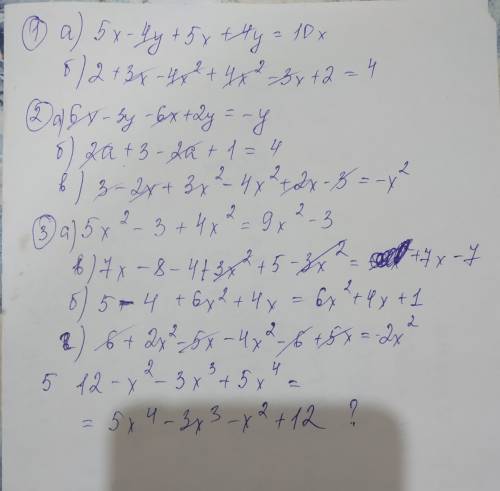 ① а) 5x - 4y + 5x + 4y = 10x
б) 2 + 3x - 4x² + 4x² - 3x + 2 = 4
② а) 6x - 3y - 6x + 2y = -y
б) 2a + 3 - 2a + 1 = 4
в) 3 - 2x + 3x² - 4x² + 2x - 3 = -x²
③ а) 5x² - 3 + 4x² = 9x² - 3
в) 7x - 8 - 4 + 3x² + 5 - 3x² = +7x - 7
б) 5 - 4 + 6x² + 4x = 6x² + 4x + 1
г) 6 + 2x² - 5x - 4x² - 6 + 5x = -2x²
5 12 - x² - 3x³ + 5x⁴ =
= 5x⁴ - 3x³ - x² + 12 ?